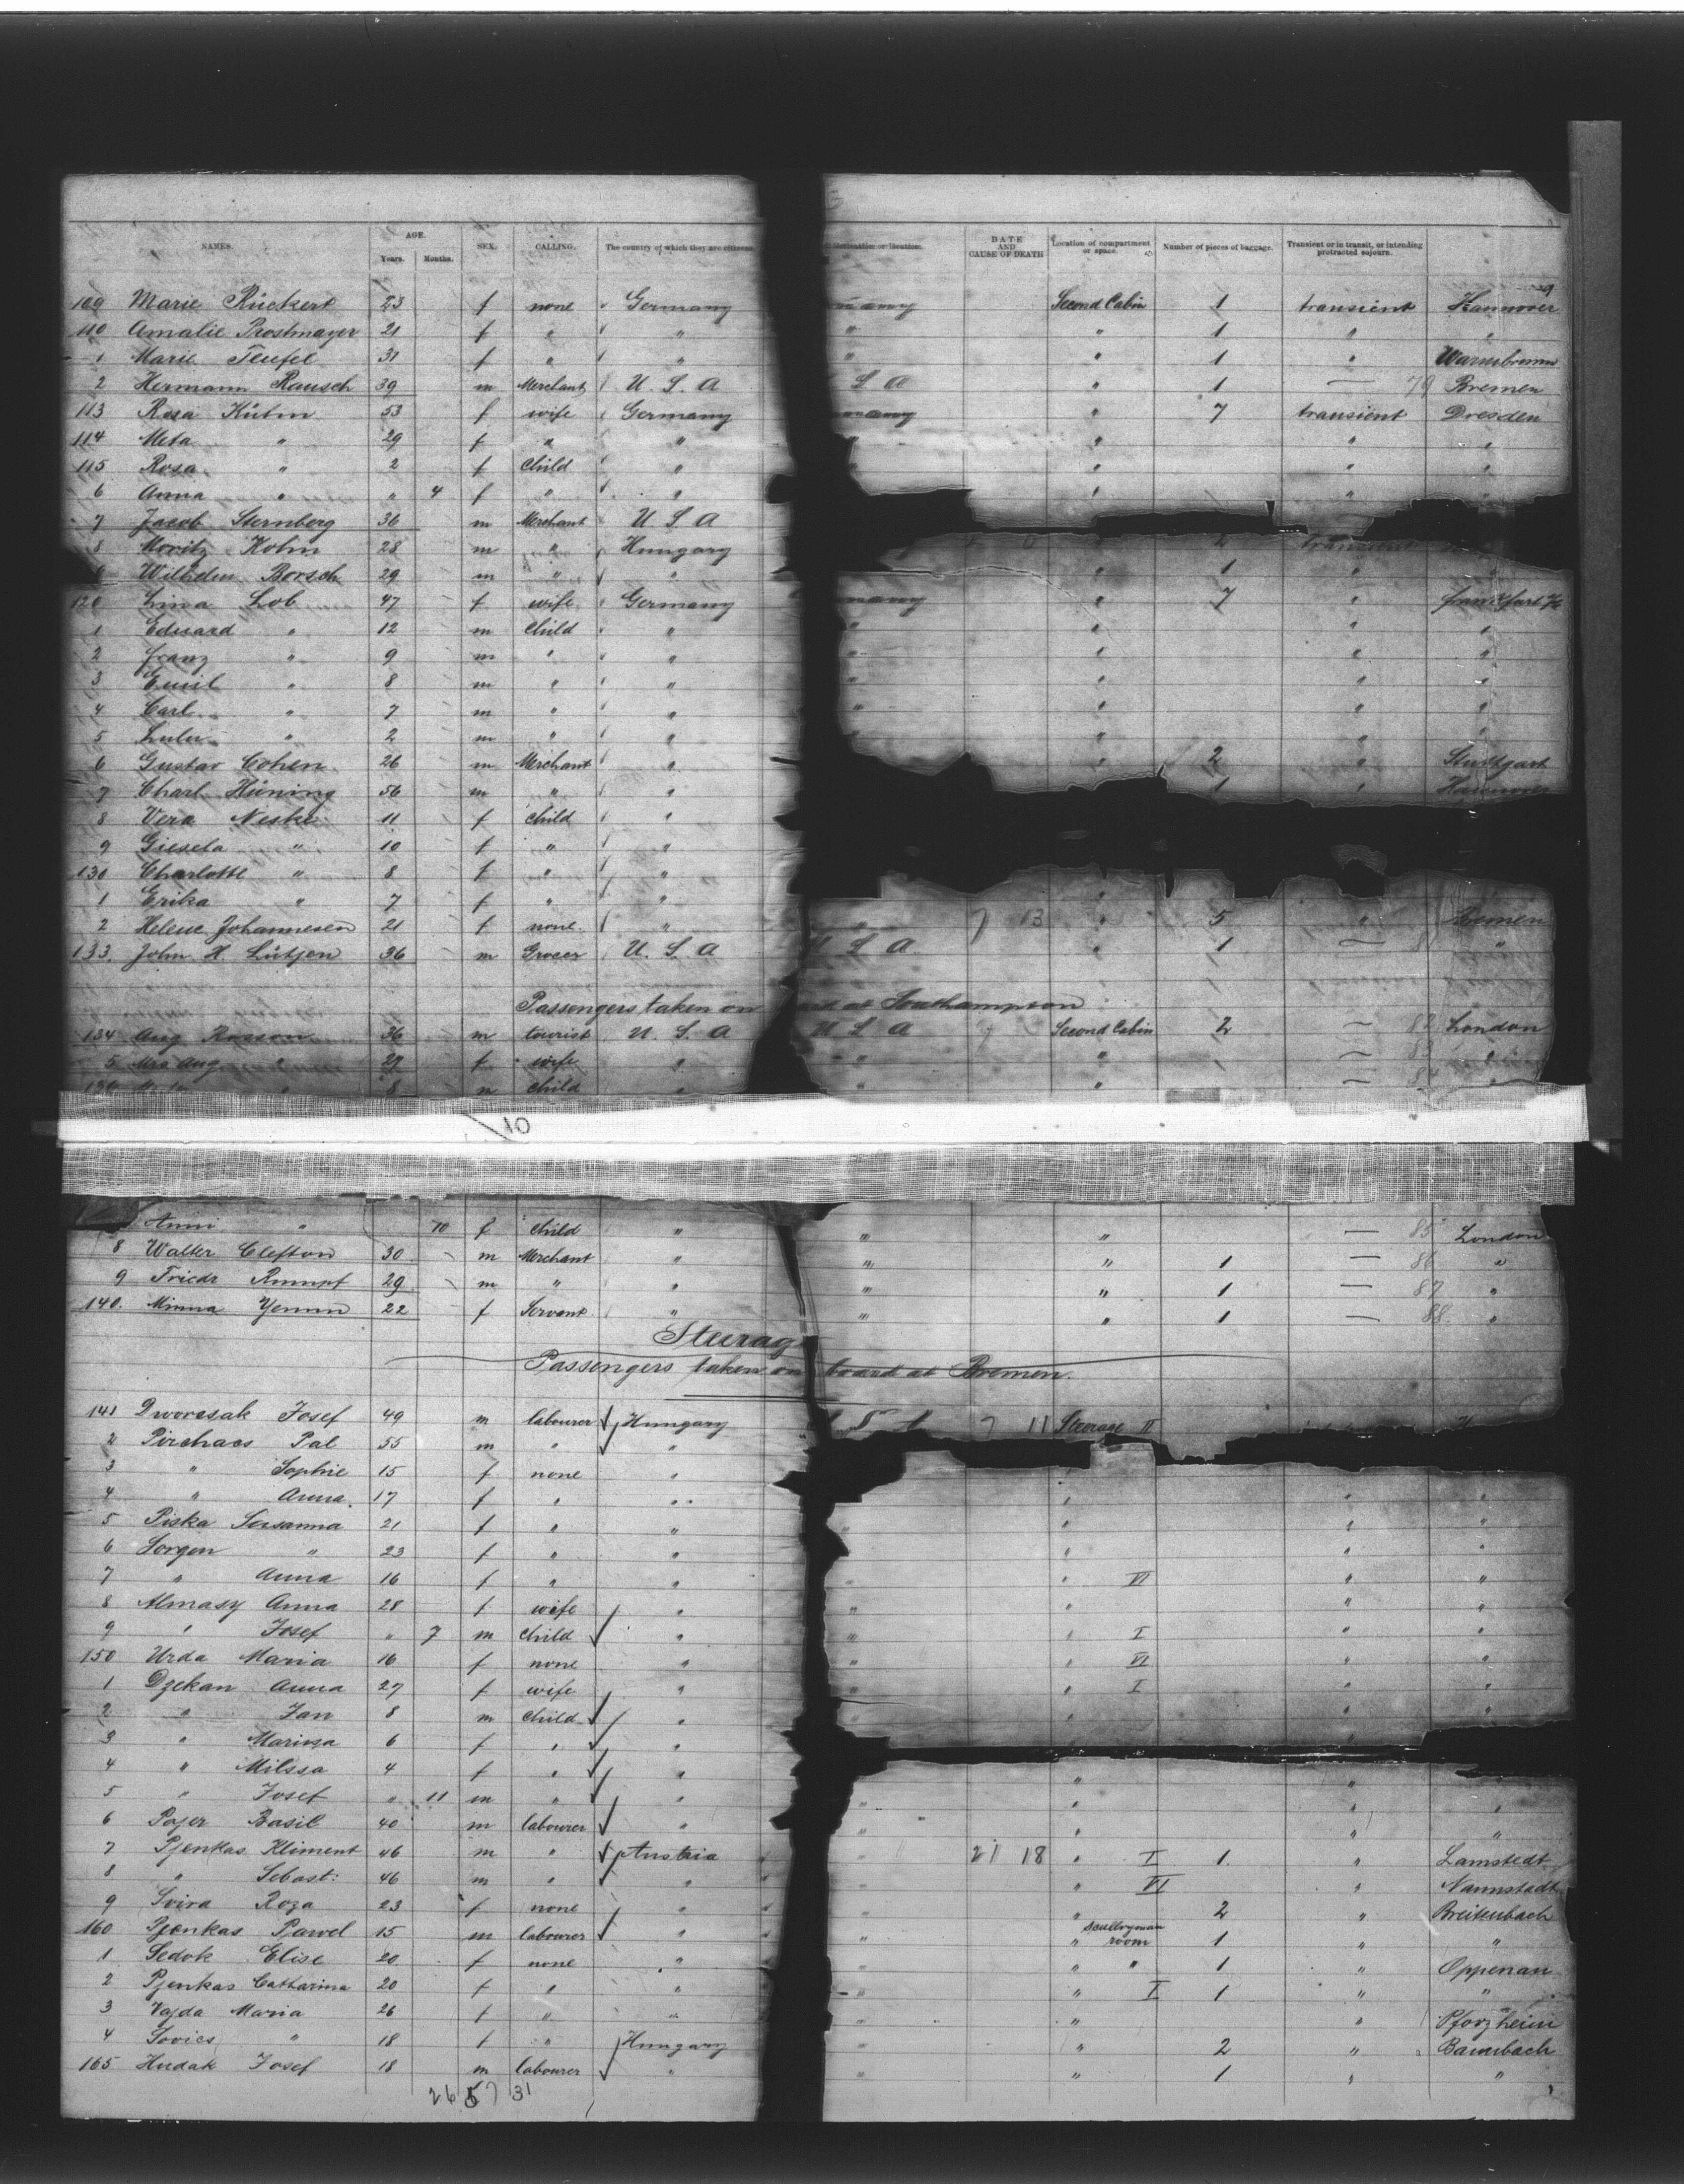 NAMES. AGE. Years. Months. SEX. CALLING. The country of which they are citizens. destination or location. DATE AND CAUSE OF DEATH Location of compartment or space. Number of pieces of baggage. Transient or in transit, or intending protracted sojourn.
109 Marie Rückert 23 f none Germany many Second Cabin 1 transient Hannover
110 Amalie Prostmayer 21 f " " " " 1 " "
1 Marie Teufel 31 f " " " " 1 "
2 Hermann Rausch 39 m Merchant U. S. A S A " 1 — 79 Bremen
113 Rosa Kühn 53 f wife Germany many " 7 transient Dresden
114 Meta " 29 f " " " " "
115 Rosa " 2 f Child " " " " "
6 Anna " " 4 f " " " " "
7 Jacob Sternberg 36 m Merchant U S A
8 Moritz Kohn 28 m " Hungary 2 transient
Wilhelm Borsch 29 m " " " 1 "
120 Lina Lob 47 f wife Germany many " 7 " Frankfurt
1 Eduard " 12 m Child " " " " "
2 Franz " 9 m " " " " " "
3 Emil " 8 m " " " " " "
4 Carl " 7 m " " " " " "
5 Lulu " 2 m " " " " "
6 Gustav Cohen 26 m Merchant " " 2 " Stuttgart
7 Charl. Hüning 56 m " " 1 " Hannover
8 Vera Neske 11 f child "
9 Giesela " 10 f " "
130 Charlotte " 8 f " "
1 Erika " 7 f " "
2 Helene Johannesen 21 f none " " 7 13 " 5 " Bremen
133. John H. Lütjen 36 m Grocer U. S. A U S A " 1 — 8 "
Passengers taken on board at Southampton
134 Aug Rosson 36 m tourist U. S. A U S A Second Cabin 2 — 82 London
5 Mrs Aug " 29 f wife " " " — 83 "
136 8 m child " " " — 84 "
10
Anni " 10 f child " " " — 85 London
8 Walter Clefton 30 m Merchant " " " 1 — 86 "
9 Friedr Rumpf 29 m " " " " 1 — 87 "
140. Minna 22 f Servant " " " 1 — 88 "
Steerag
Passengers taken on board at Bremen.
141 Dworcsak Josef 49 m labourer Hungary 7 11 Steerage II
2 Pirchacs Pal 55 m " "
3 " Sophie 15 f none "
4 " Anna 17 f " " " " "
5 Piska Susanna 21 f " " " " " "
6 Sorgen " 23 f " " " " "
7 " Anna 16 f " " " " VI " "
8 Almasy Anna 28 f wife " " " " "
9 " Josef " 7 m child " " " I " "
150 Urda Maria 16 f none " " " VI " "
1 Dzekan Anna 27 f wife " " " I " "
2 " Jan 8 m child " " " "
3 " Marissa 6 f " "
4 " Milssa 4 f " " " "
5 " Josef " 11 m " " " " " "
6 Pajer Basil 40 m labourer " " " " "
7 Pjenkas Kliment 46 m " Austria " 21 18 " I 1. " Lamstedt
8 " Sebast: 46 m " " " VI " Naunstadt
9 Svira Roza 23 f none " " 2 " Breitenbach
160 Pjenkas Pawel 15 m labourer " " " scullryman room 1 " "
1 Sedok Elise 20 f none " " " " 1 " Oppenau
2 Pjenkas Catharina 20 f " " " " I 1 " "
3 Vajda Maria 26 f " " " " " Pforzheim
4 Sovics " 18 f " Hungary " " 2 " Baumbach
165 Hudak Josef 18 m labourer " " " 1 " "